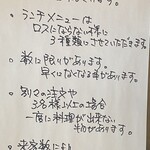 。ランチメニューは
ロスにならない様に
3種類にさせていただきます。
。数に限りがあります。
早くになくなる事があります。
。別々の注文や
3名様以上の場合
一度に料理が出来ない
事があります。
。来客数により